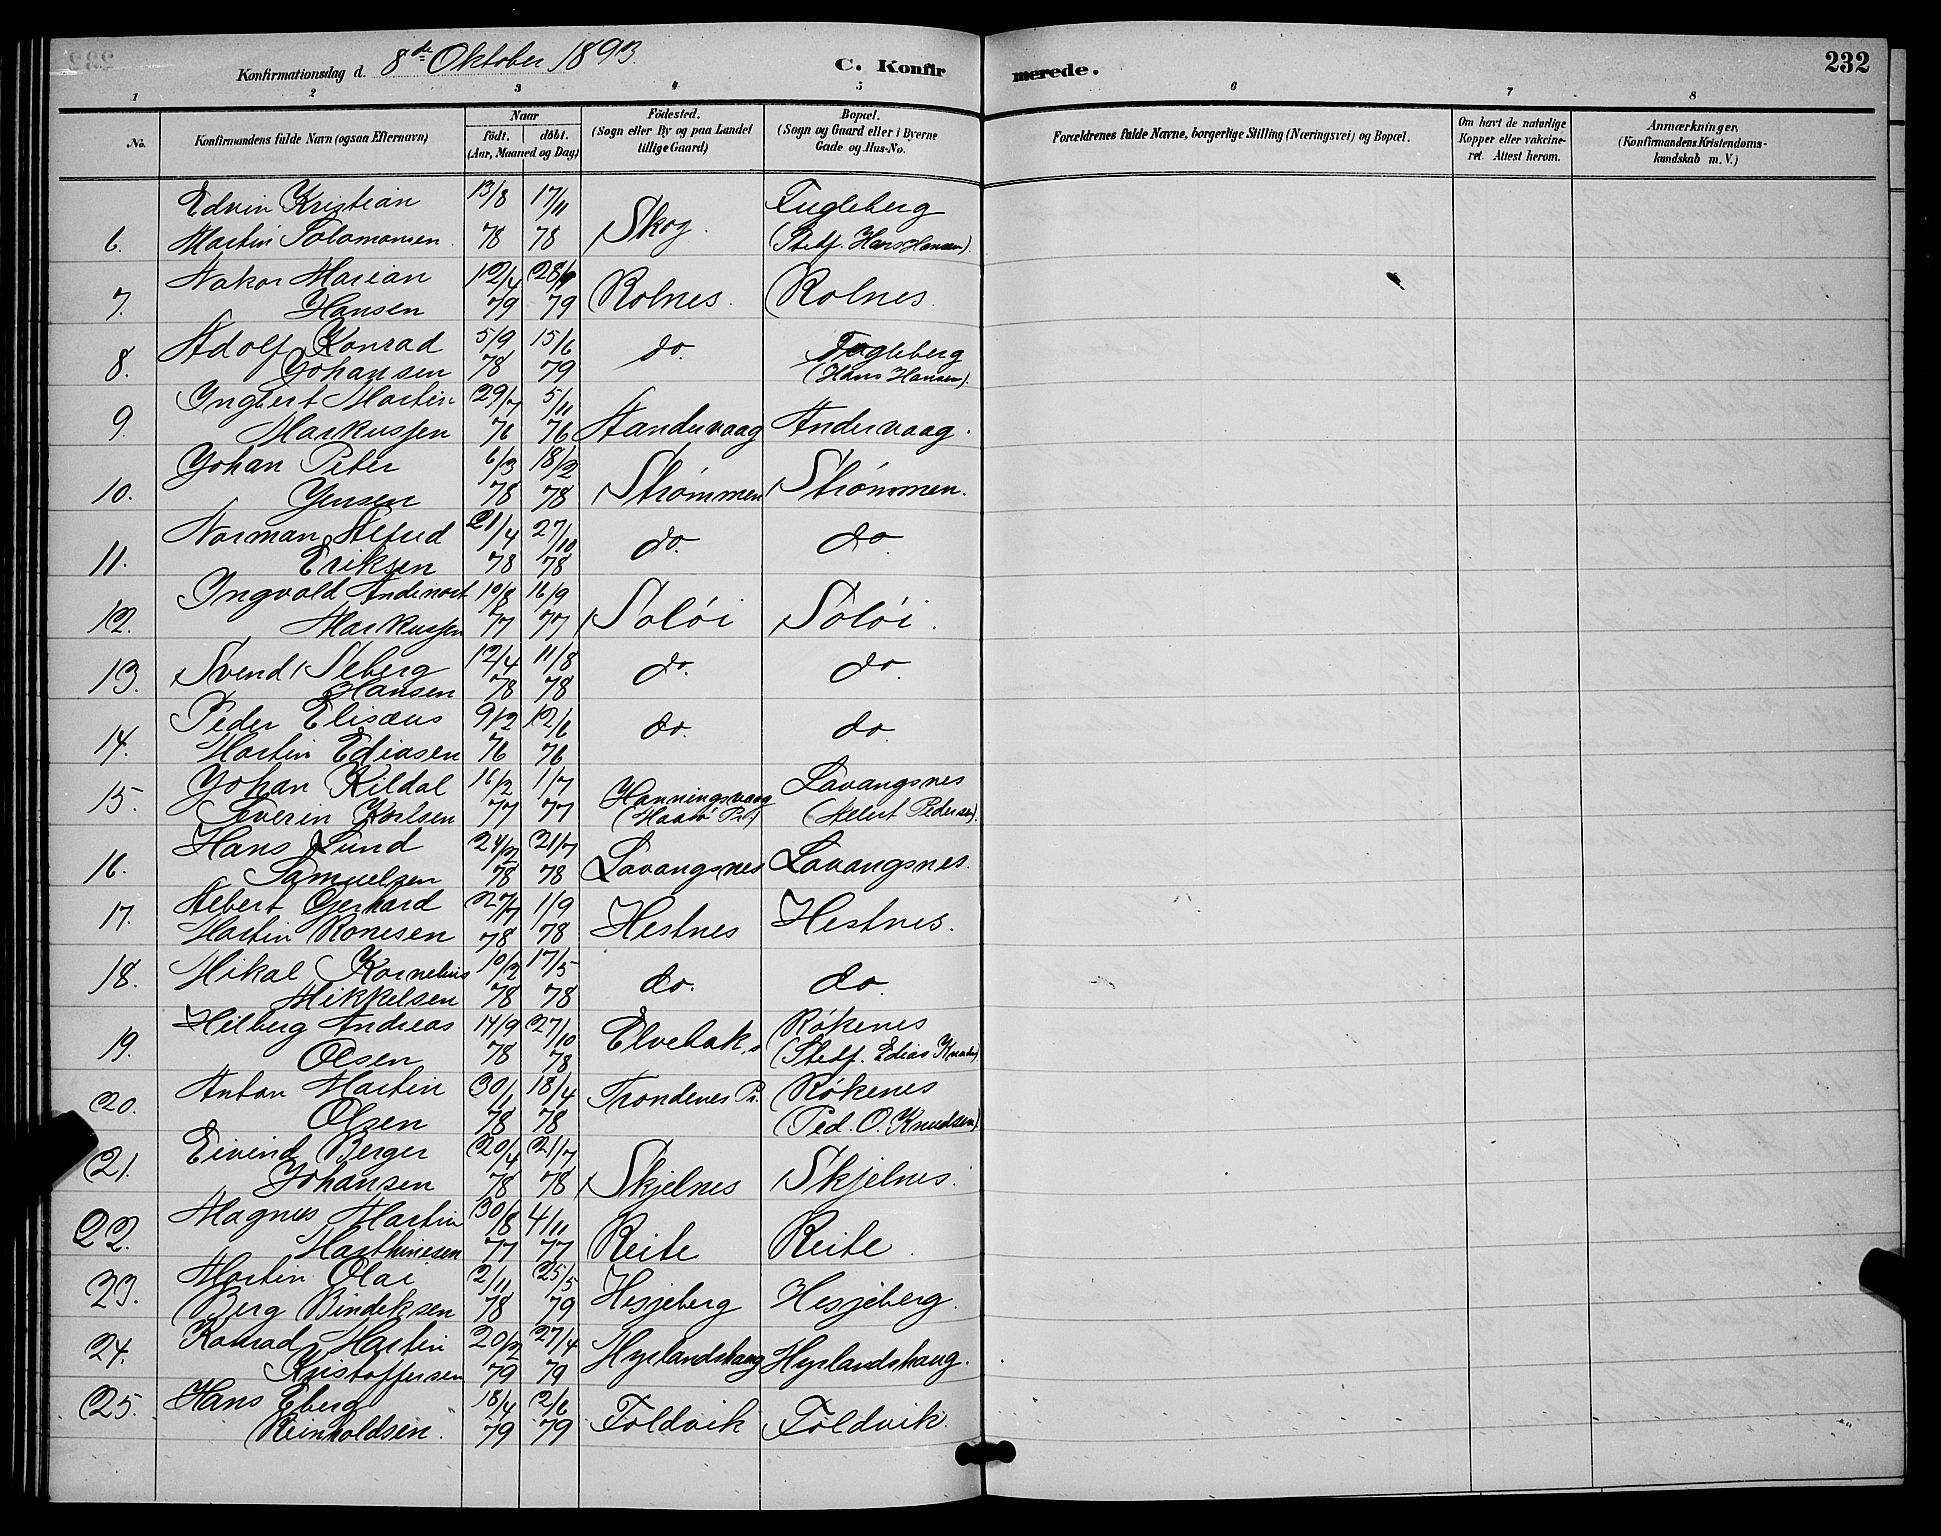 Konfirmationsdag d. 8de Oktober 1893. C. Konfirmerede. 232
1 2 3 4 5 6 7 8
No. Konfirmandens fulde Navn (ogsaa Efternavn) Naar födt. döbt. (Aar, Maaned og Dag) Födested. (Sogn eller By og paa Landet tillige Gaard) Bopæl. (Sogn og Gaard eller i Byerne Gade og Hus-No. Forældrenes fulde Navne, borgerlige Stilling (Næringsvei) og Bopæl. Om havt de naturlige Kopper eller vakcineret. Attest herom. Anmærkninger. (Konfirmandens Kristendomskundskab m. V.)
Edvin Kristian 13/8 17/11 Fugleberg
6. Martin Salamonsen. 78 78 Skog. (Stedf. Hans Hansen).
Hakor Marian 12/4 28/9
7. Hansen 79 79 Rolnes. Rolnes.
Adolf Konrad 5/9 15/6 do. Fugleberg
8. Johansen 78 79 (Hans Hansen).
Ingbert Martin 29/7 5/11
9. Markussen 76 76 Aandervaag Andervaag.
Johan Peter 6/3 18/2
10. Jensen 78 78 Strømmen Strømmen.
Norman Alfred 21/4 27/10 do. do.
11. Eriksen 78 78
Ingvald Andinort 10/8 16/9
12. Markussen 77 77 Soløi Soløi.
13. Svend Seberg 12/4 11/8 do. do.
Hansen 78 78
Peder Elisæus 9/2 12/6 do. do.
14. Martin Ediasen 76 76
15. Johan Kildal 16/2 1/7 Hanningsvaag Lavangsnes
Severin Karlsen 77 77 (Hadsel Pr.) (Albert Pedersen).
Hans Lund 24/2 21/7
16. Samuelsen 78 78 Lavangsnes Lavangsnes.
17. Albert Gerhard 27/7 1/9
Martin Ronesen 78 78 Hestnes Hestnes.
18. Mikal Kornelius 10/2 17/5 do. do.
Mikkelsen 78 78
Hilberg Andreas 14/9 27/10 Elvebak Røkenes
19. Olsen 78 78 (Stedf. Edias Knuds)
20. Anton Martin 30/1 18/4 Trondenes Pr. Røkenes
Olsen 78 78 (Ped. O. Knudsen)
21. Eivind Berger 20/4 21/7
Johansen 78 78 Skjelnes Skjelnes.
22. Magnus Martin 30/8 4/11
Marthinesen 77 77 Reite Reite.
23. Martin Olai 2/11 25/5
Berg Bindeksen 78 79 Hesjeberg Hesjeberg.
24. Konrad Martin 20/2 27/4
Kristoffersen 79 79 Hyrlandshaug Hyrlandshaug.
25. Hans Eberg 18/4 2/6
Reinholdsen. 79 79 Foldvik Foldvik.